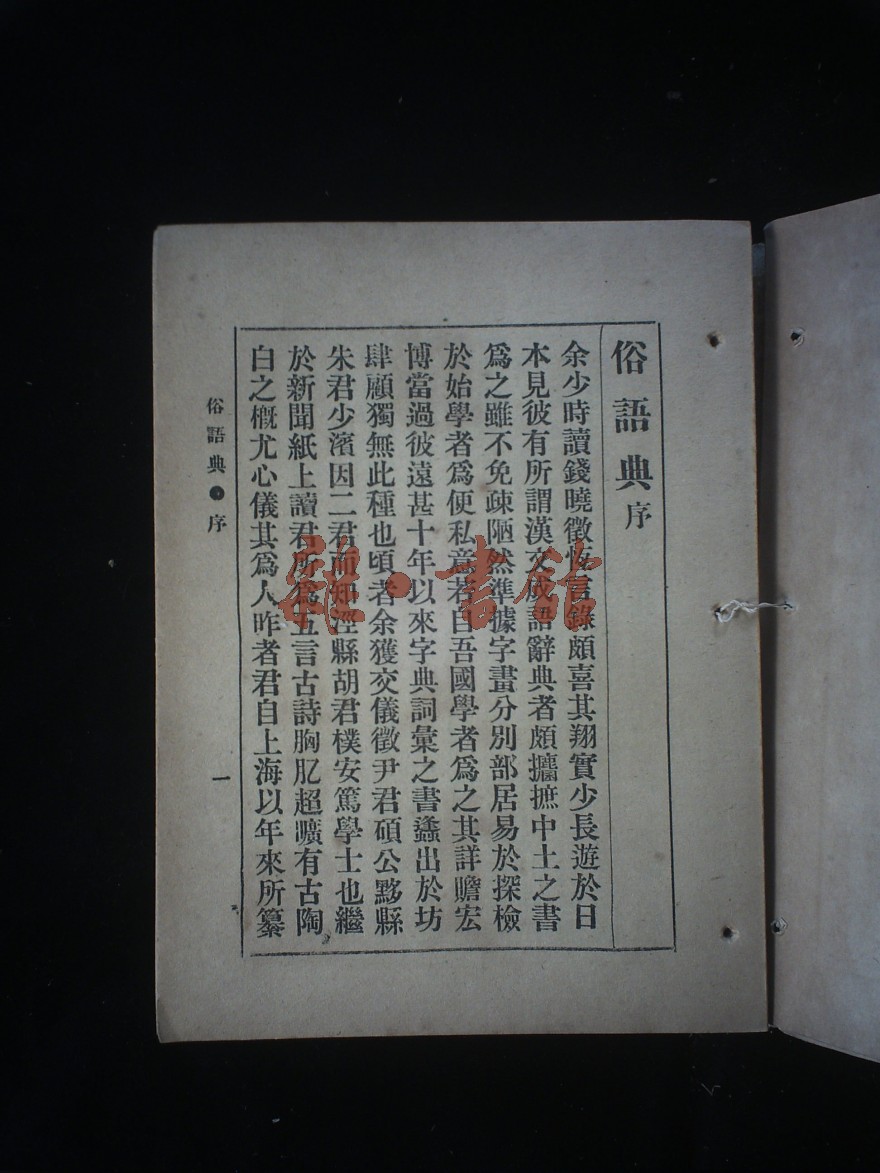 俗語典序
余少時讀錢曉徵恆言錄頗喜其翔實少長遊於日
本見彼有所謂漢文成語辭典者頗攟摭中土之書
爲之雖不免疎陋然準據字畫分別部居易於探檢
於始學者爲便私意若自吾國學者爲之其詳贍宏
博當過彼遠甚十年以來字典詞彙之書蠭出於坊
肆顧獨無此種也頃者余獲交儀徵尹君碩公黟縣
朱君少濱因二君而知涇縣胡君樸安篤學士也繼
於新聞紙上讀君所爲五言古詩胸肊超曠有古陶
白之槪尤心儀其爲人昨者君自上海以年來所纂
俗語典 序
一
雜·書館